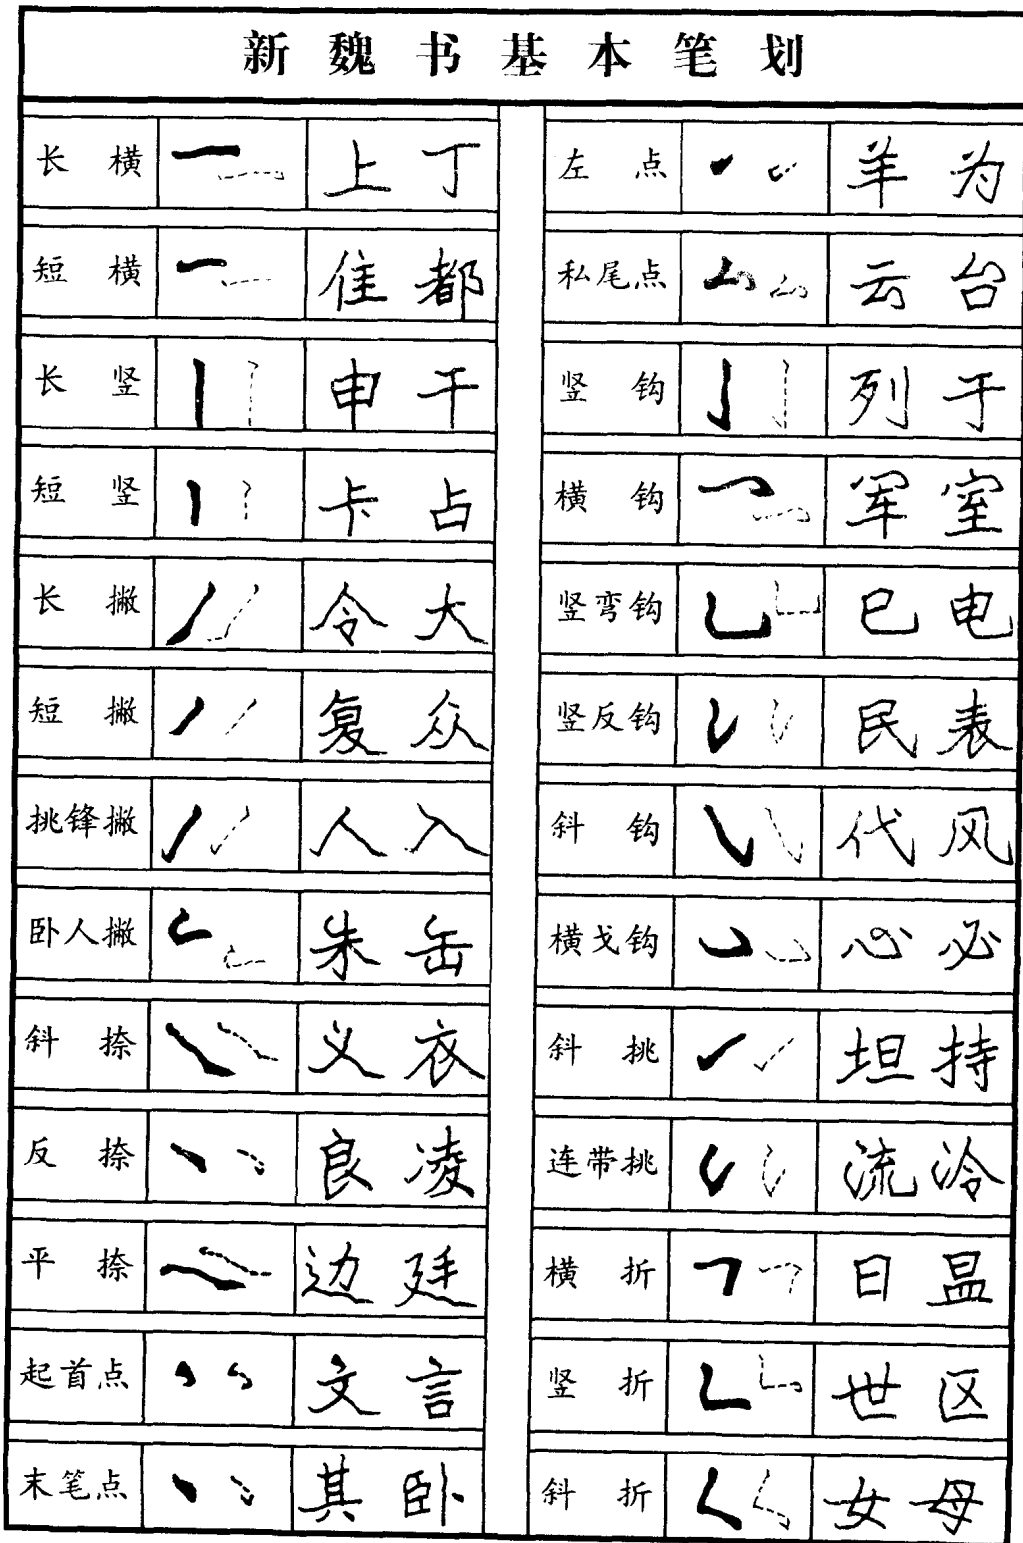 新魏书基本笔划
长横 上丁
短横 隹都
长竖 申干
短竖 卡占
长撇 令大
短撇 复众
挑锋撇 人入
卧人撇 朱缶
斜捺 义衣
反捺 良凌
平捺 边廷
起首点 文言
末笔点 其卧
左点 羊为
私尾点 云台
竖钩 列于
横钩 军室
竖弯钩 巳电
竖反钩 民表
斜钩 代风
横戈钩 心必
斜挑 坦持
连带挑 流冷
横折 日昷
竖折 世区
斜折 女母